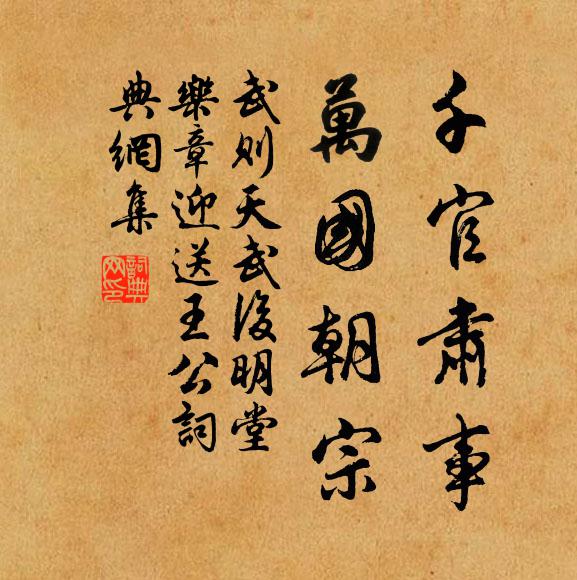 千官肅事
萬國朝宗
武則天武後明堂
樂章迎送王公詞
典網集
詞典
网印